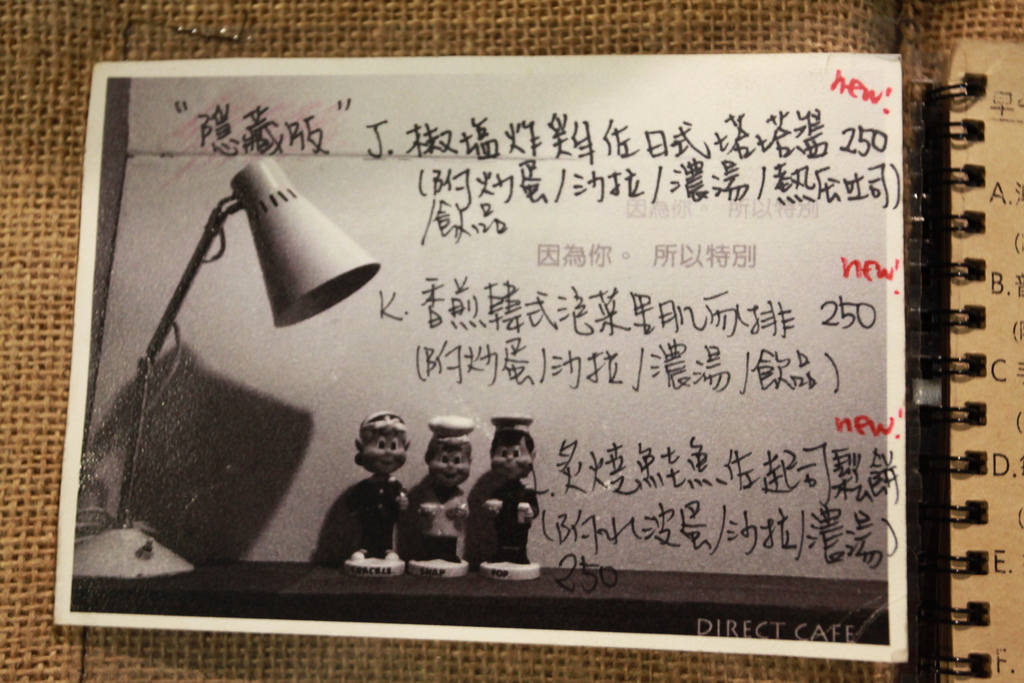 new!
"隱藏版" J. 椒塩炸雞佐日式塔塔醬 250
(附炒蛋/沙拉/濃湯/熱压吐司)
/飲品
因為你。 所以特別
因為你。 所以特別
new!
K. 香煎韓式泡菜里肌肉排 250
(附炒蛋/沙拉/濃湯/飲品)
new!
L. 炙燒鮭魚佐起司鬆餅
(附水波蛋/沙拉/濃湯)
250
CRACKLE SNAP POP
DIRECT CAFE
A.
B.
C
D.
E.
F.